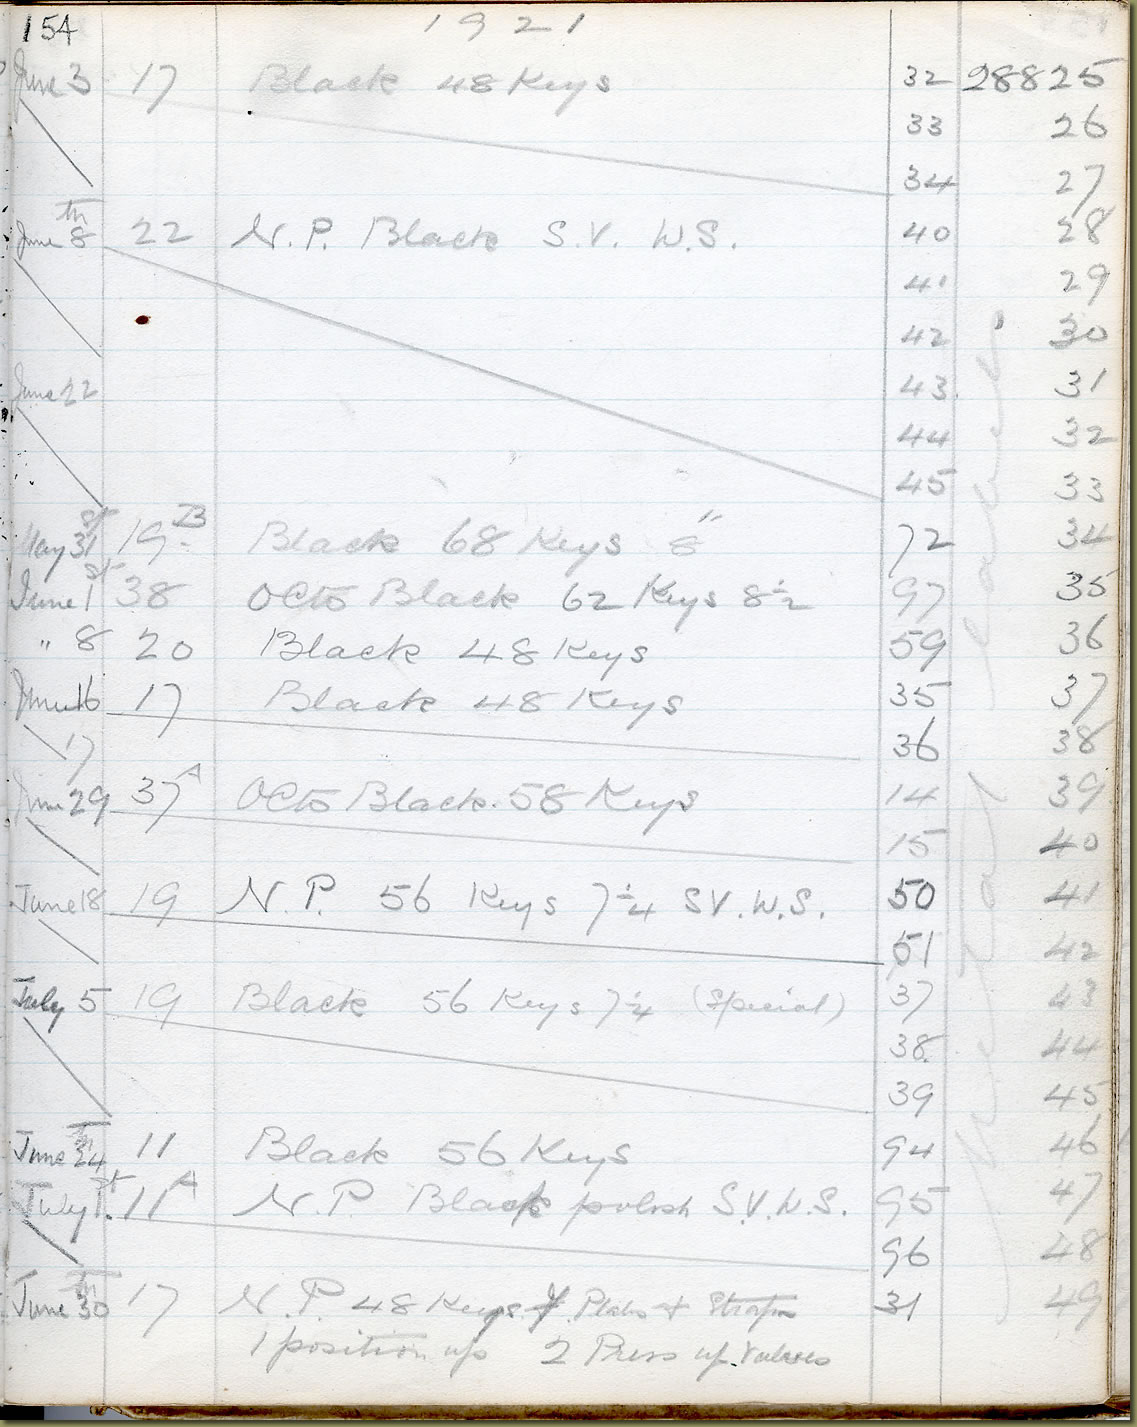 154 1921
June 3 17 Black 48 Keys 32 28825
33 26
34 27
June 8th 22 N.P. Black S.V. W.S. 40 28
41 29
42 30
June 22 43 31
44 32
45 33
May 31st 19B Black 68 Keys 8" 72 34
June 1st 38 Octo Black 62 Keys 8½ 97 35
" 8 20 Black 48 Keys 59 36
June 16 17 Black 48 Keys 35 37
17 36 38
June 29 37A Octo Black. 58 Keys 14 39
15 40
June 18 19 N.P. 56 Keys 7¼ SV. W.S. 50 41
51 42
July 5 19 Black 56 Keys 7¼ (Special) 37 43
38 44
39 45
June 24th 11 Black 56 Keys 94 46
July 1st. 11A N.P. Black polish S.V.W.S. 95 47
96 48
June 30th 17 N.P 48 Keys & Straps 31 49
1 position up 2 Press up. Valves